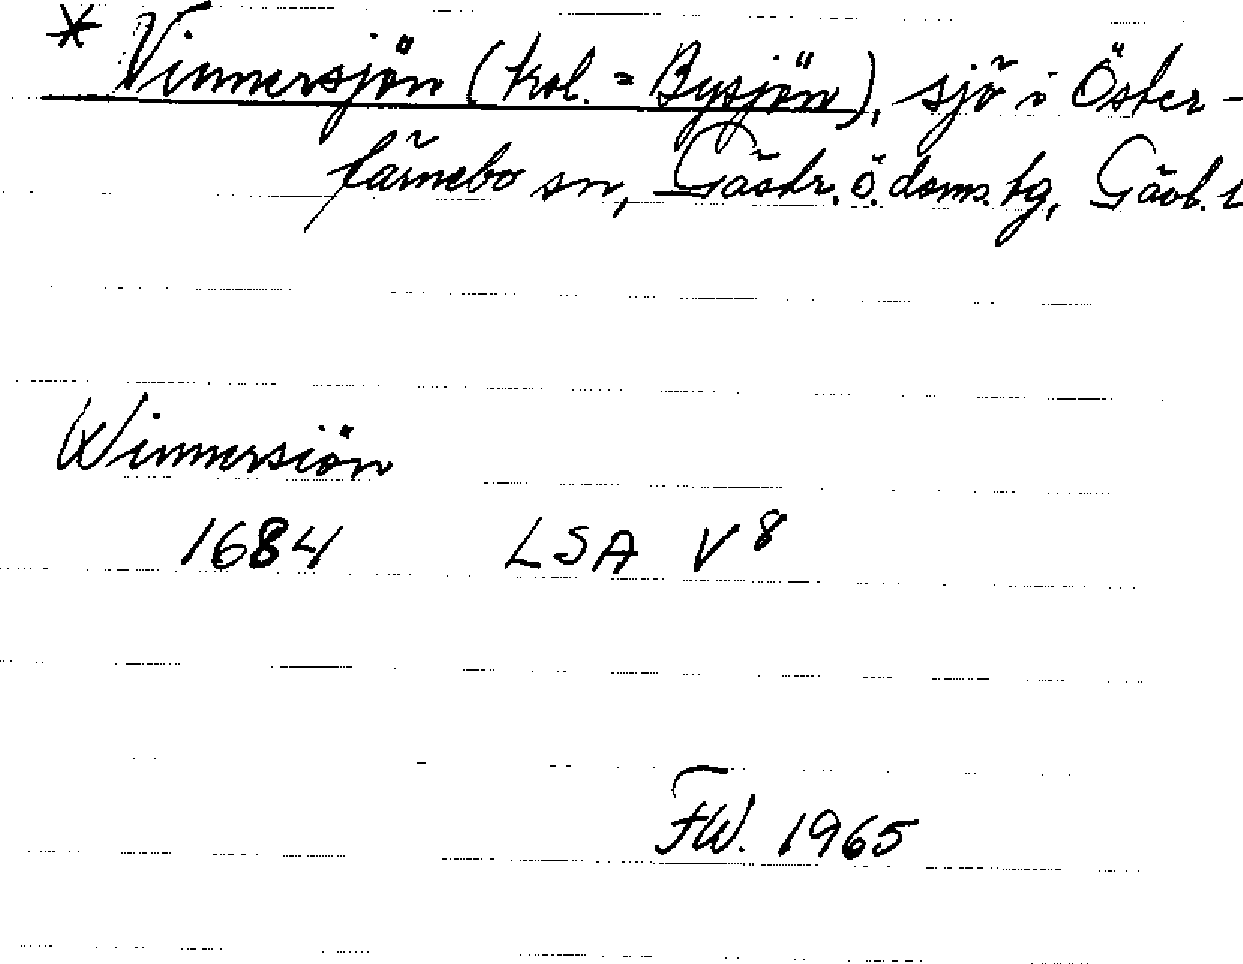 * Vinnersjön (trol. = Bysjön), sjö i Öster-
färnebo sn, Gästr. ö. doms. tg, Gävl. l
Winnersiön
1684 LSA V 8
FW. 1965